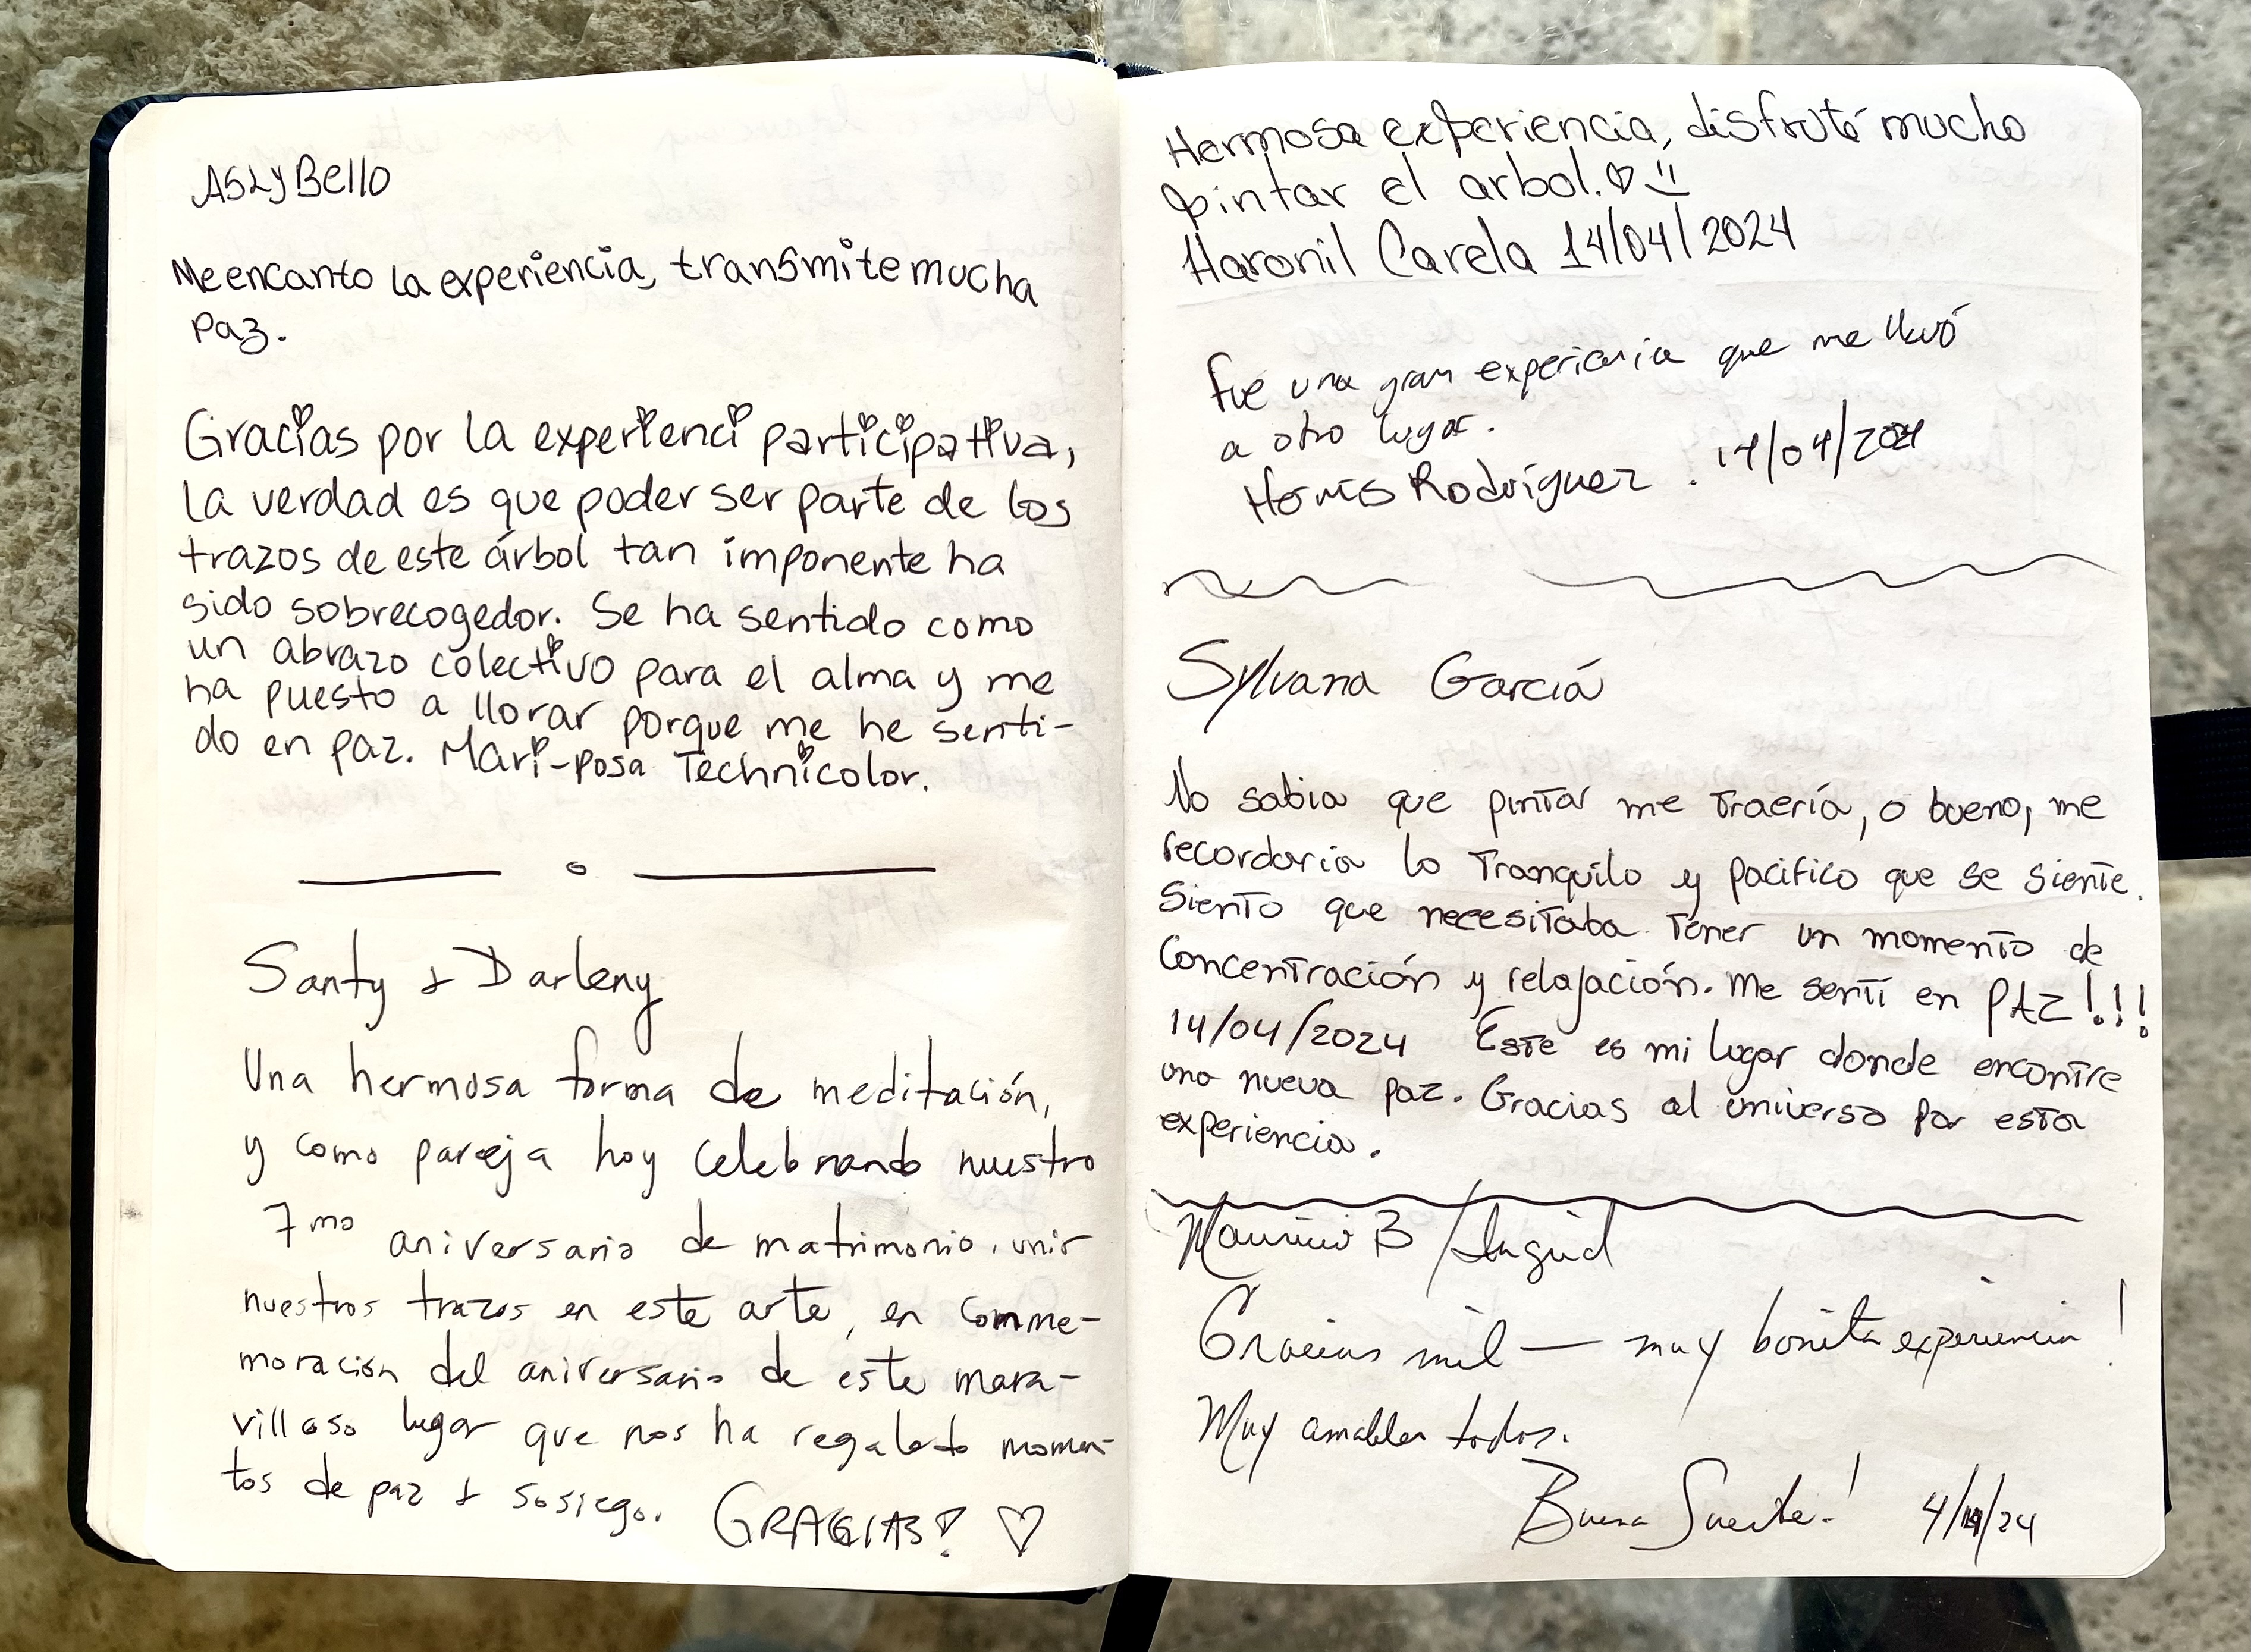 ASLY Bello
Me encanto la experiencia, transmite mucha
paz.
Gracias por la experienci participativa,
la verdad es que poder ser parte de los
trazos de este árbol tan imponente ha
sido sobrecogedor. Se ha sentido como
un abrazo colectivo para el alma y me
ha puesto a llorar porque me he senti-
do en paz. Mari-posa Technicolor.
Santy & Darleny
Una hermosa forma de meditación,
y como pareja hoy celebrando nuestro
7mo aniversario de matrimonio, unir
nuestros trazos en este arte, en conme-
moración del aniversario de este mara-
villoso lugar que nos ha regalado momen-
tos de paz & sosiego. GRACIAS! ♡
Hermosa experiencia, disfruté mucho
pintar el arbol. ♡ :)
Haronil Carela 14/04/2024
Fue una gran experiencia que me llevó
a otro lugar.
Rodríguez. 14/04/2024
Sylvana Garciá
No sabia que pintar me traería, o bueno, me
recordaria lo tranquilo y pacifico que se siente.
Siento que necesitaba tener un momento de
Concentración y relajación. Me sentí en PAZ!!!
14/04/2024 Este es mi lugar donde encontre
una nueva paz. Gracias al universo por esta
experiencia.
Mauricio B / Ingrid
Gracias mil — muy bonita experiencia!
Muy amables todos.
Buena Suerte! 4/14/24